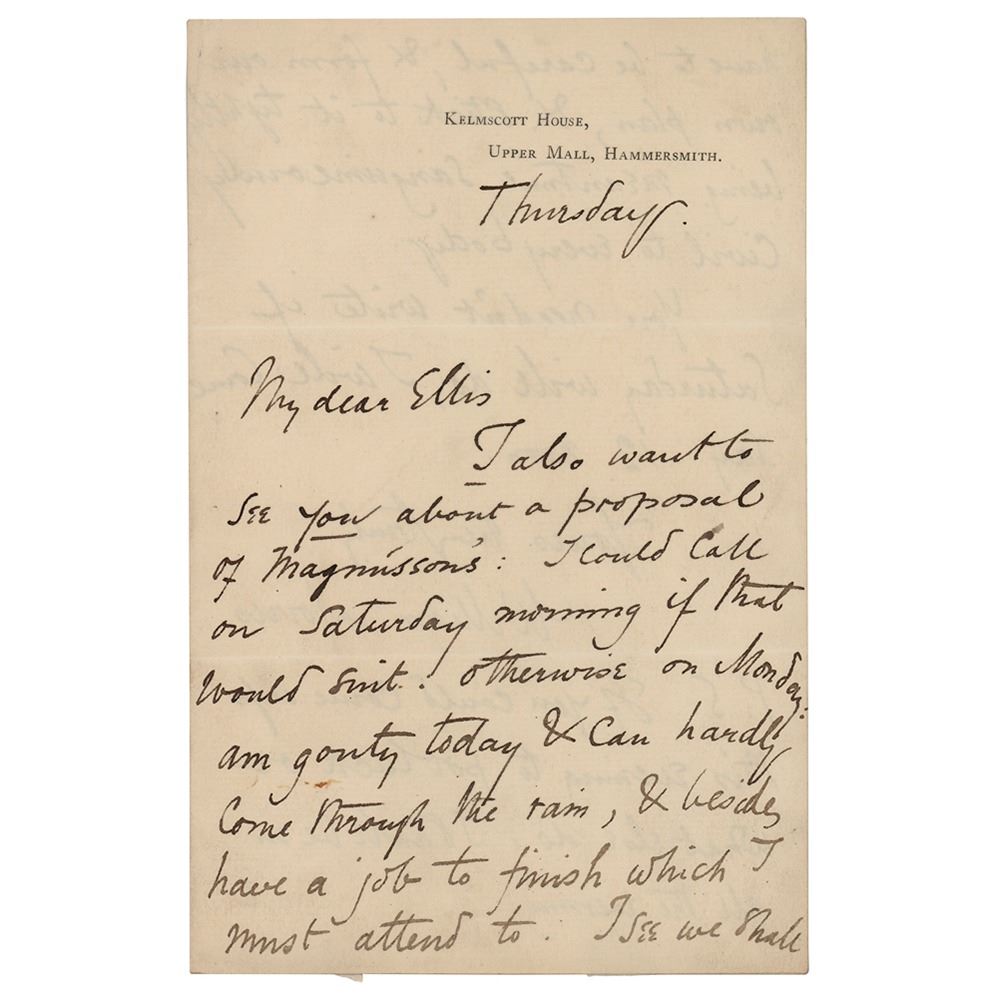 Kelmscott House,
Upper Mall, Hammersmith.
Thursday.
My dear Ellis
I also want to
see you about a proposal
of Magnússon's: I could call
on Saturday morning if that
would suit: otherwise on Monday:
am gouty today & can hardly
come through the rain, & besides
have a job to finish which I
must attend to. I see we shall